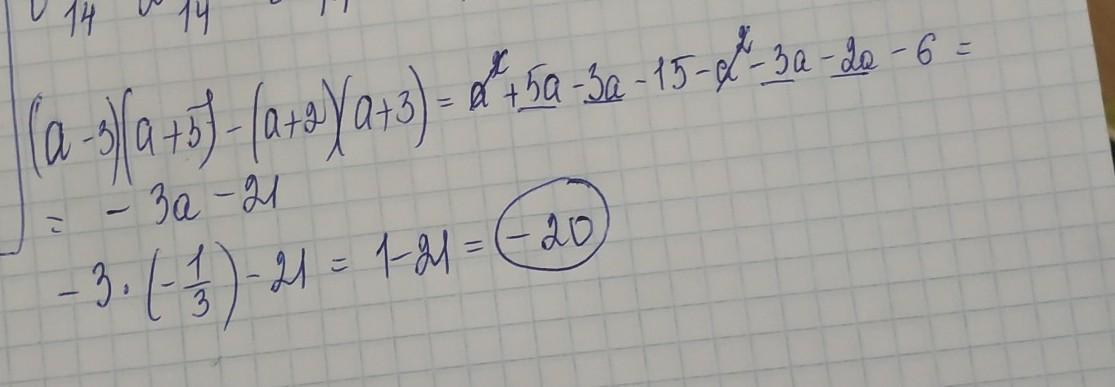 14 14
(a-3)(a+5)-(a+2)(a+3) = a²+5a-3a-15-a²-3a-2a-6 =
= -3a-21
-3·(-1/3)-21 = 1-21 = -20